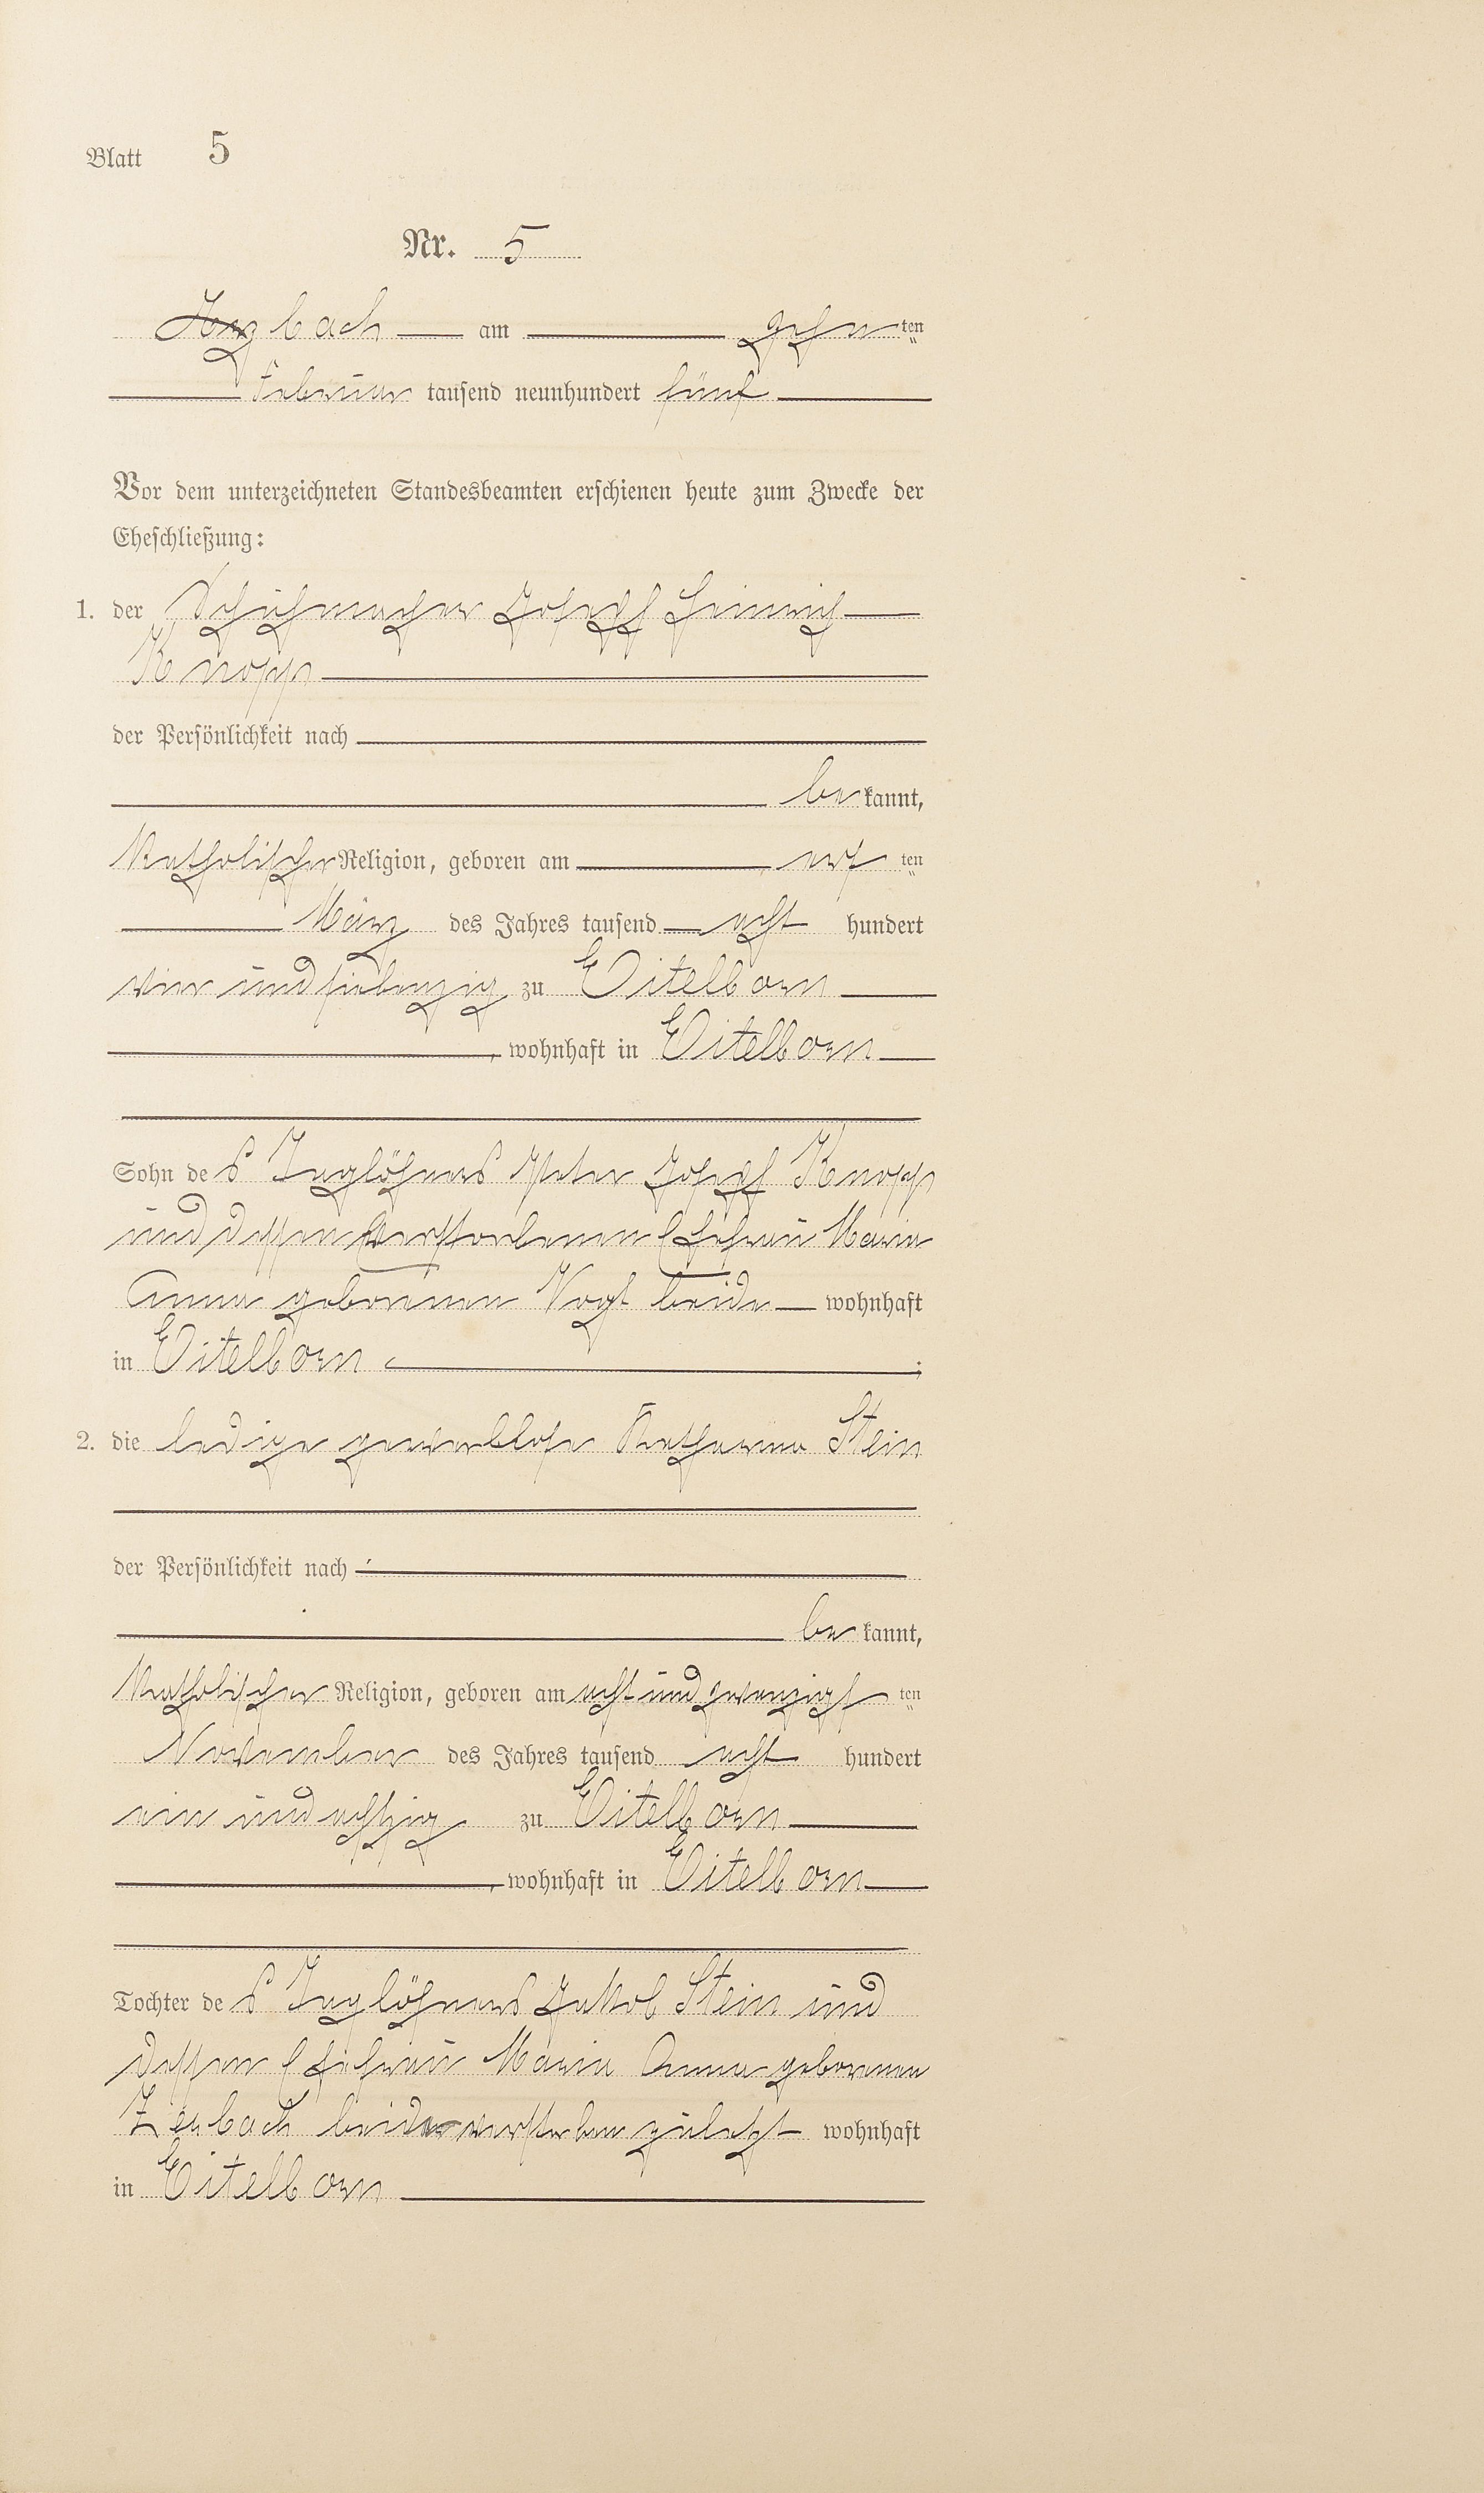 Blatt 5
Nr. 5
bach am zehnten
Februar tausend neunhundert fünf
Vor dem unterzeichneten Standesbeamten erschienen heute zum Zwecke der
Eheschließung:
1. der Schuhmacher Joseph Heinrich
Knopp
der Persönlichkeit nach
bekannt,
Katholischer Religion, geboren am ten
März des Jahres tausend acht hundert
vier und siebenzig zu Eitelborn
, wohnhaft in Eitelborn
Sohn des Taglöhners Peter Joseph Knopp
und dessen verstorbenen Ehefrau Maria
Anna geborenen Vogt beide wohnhaft
in Eitelborn ;
2. die ledige gewerblose Katharina Stein
der Persönlichkeit nach
bekannt,
Katholischer Religion, geboren am acht und zwanzigsten
November des Jahres tausend acht hundert
ein und achtzig zu Eitelborn
, wohnhaft in Eitelborn
Tochter des Taglöhners Jakob Stein und
dessen Ehefrau Maria Anna geborenen
Zerbach beide verstorben zuletzt wohnhaft
in Eitelborn